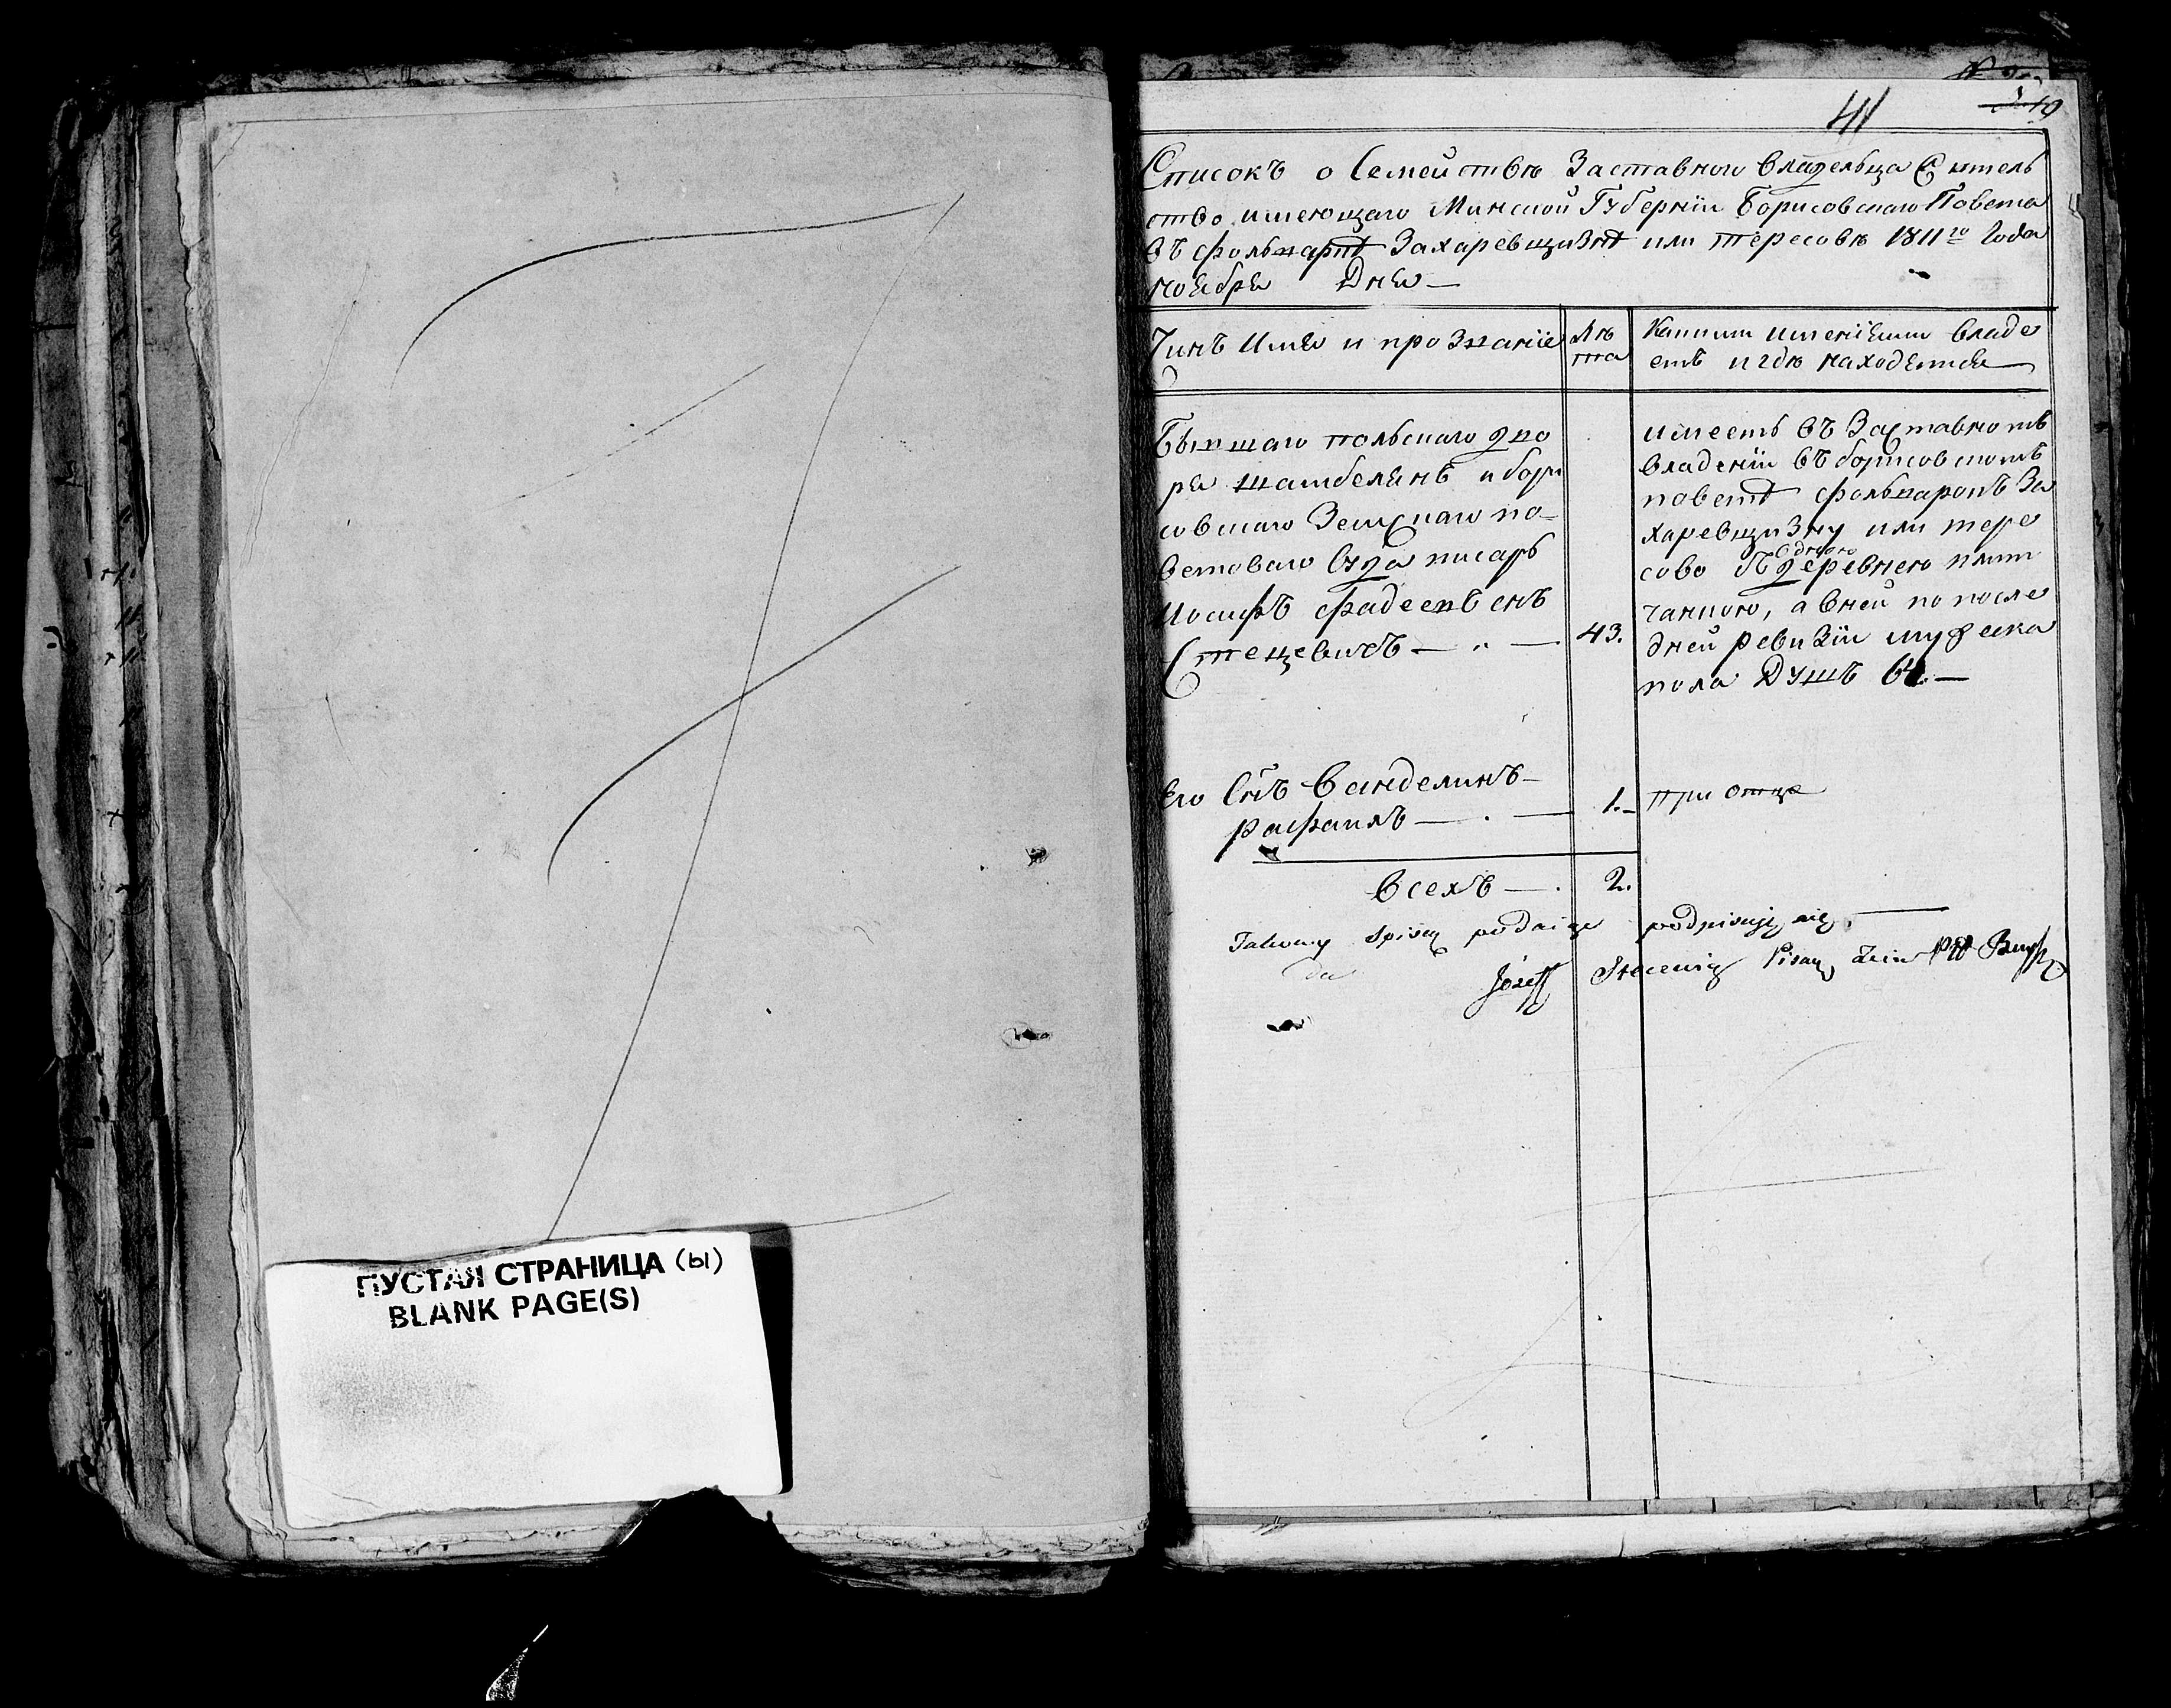 ПУСТАЯ СТРАНИЦА (ы)
BLANK PAGE(S)
41
Списокъ о Семействѣ Заставного владельца Жытель
ство имеющаго Минской Губерніи Борисовского Повета
въ фольваркѣ Захаревщизнѣ или Тересовѣ 1811го Года
ноября Дня —
Чинъ Имя и прозваніе
Лѣ
та
Какимъ имѣніемъ владе
етъ и гдѣ находится
Бывшаго польскаго дво
ра шамбелянъ и бори
совскаго Земскаго по-
ветоваго Суда писарь
Иосифъ Фадеевъ снъ
Стецевичъ — " — 43.
имеетъ въ Заставномъ
владеніи въ борисовскомъ
поветѣ фольварокъ За
харевщизну или тере
сово съ одною деревнею
, а въ ней по после
дней ревизіи мужеска
пола Душъ —
Его Снъ Ванделинъ-
Рафаилъ — . — 1. —
при отце
Всехъ — . 2.
Takowy spisek podaiąc podpisuję się —
Józeff Stecewicz Pisarz Ziem Ptt